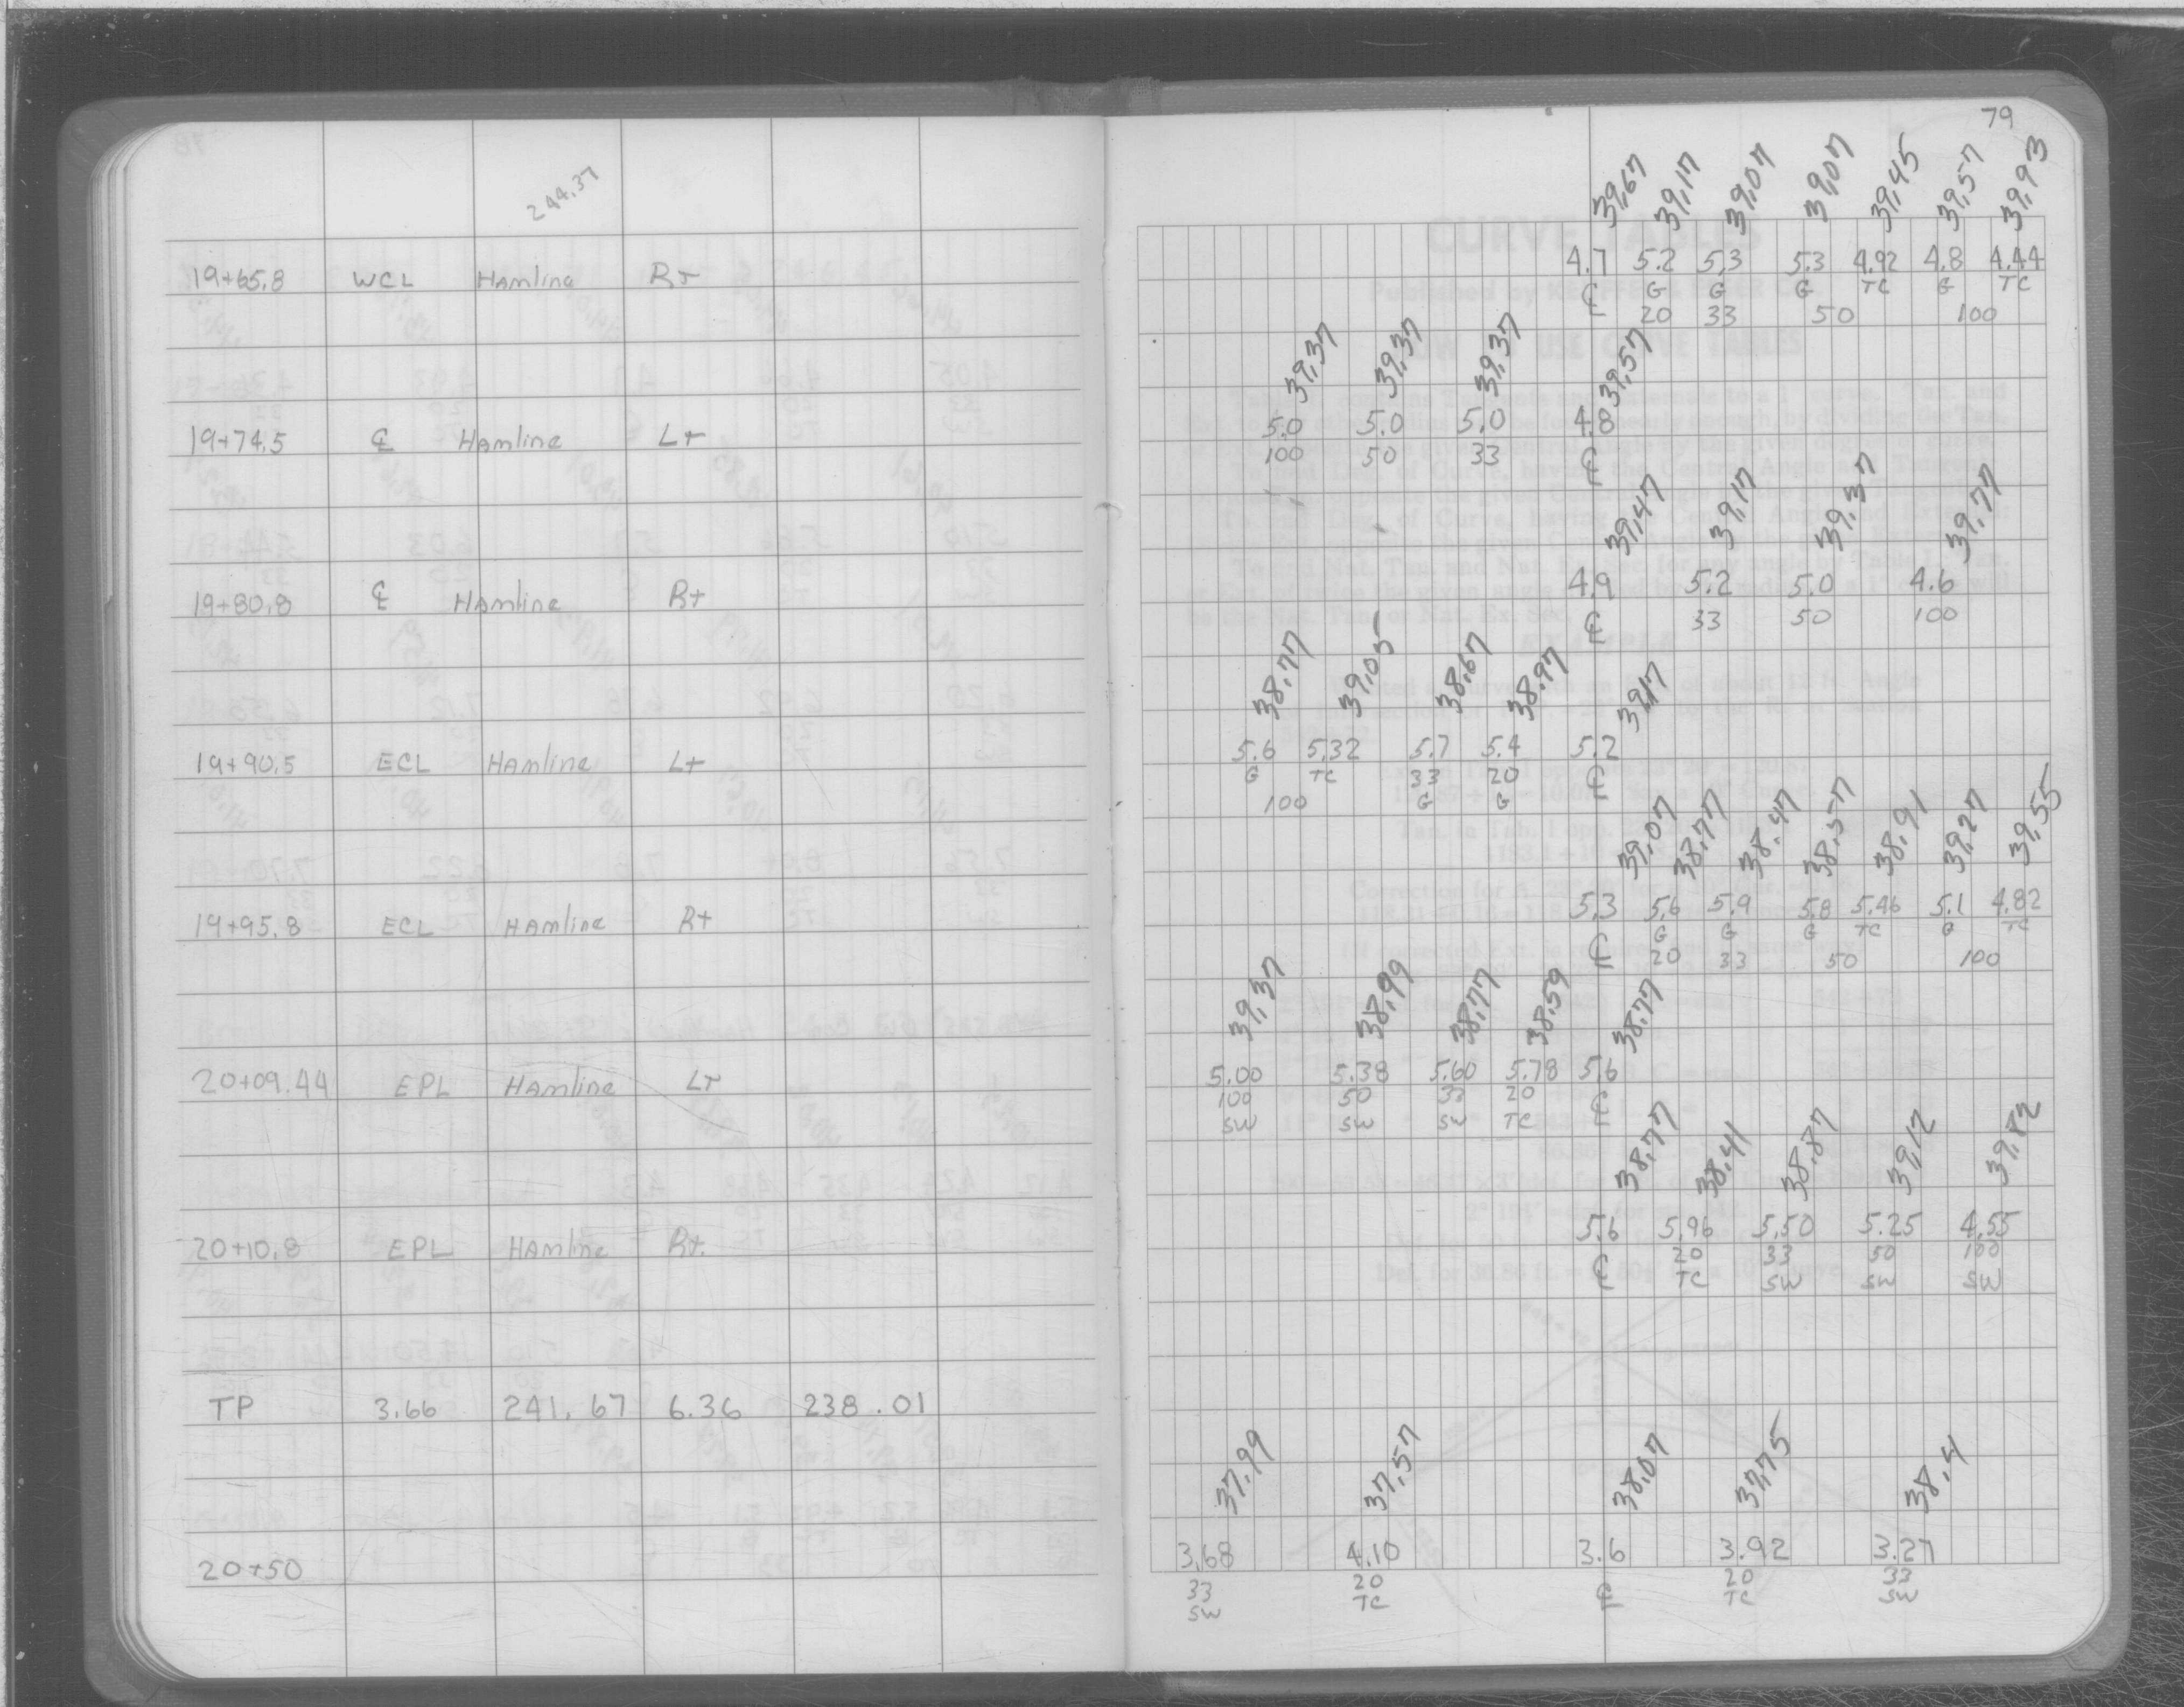 79
244.37
39.67 39.17 39.07 39.07 39.45 39.57 39.93
19+65.8 WCL Hamline Rt 4.7 5.2 5.3 5.3 4.92 4.8 4.44
℄ G G G TC G TC
20 33 50 100
39.37 39.37 39.37 39.57
19+74.5 ℄ Hamline Lt 5.0 5.0 5.0 4.8
100 50 33 ℄
39.47 39.17 39.37 39.77
19+80.8 ℄ Hamline Rt 4.9 5.2 5.0 4.6
℄ 33 50 100
38.77 39.05 38.67 38.97 39.17
19+90.5 ECL Hamline Lt 5.6 5.32 5.7 5.4 5.2
G TC 33 20 ℄
100 G G
39.07 38.77 38.47 38.57 38.91 39.27 39.55
19+95.8 ECL Hamline Rt 5.3 5.6 5.9 5.8 5.46 5.1 4.82
G G G TC G TC
℄ 20 33 50 100
39.37 38.99 38.77 38.59 38.77
20+09.44 EPL Hamline Lt 5.00 5.38 5.60 5.78 5.6
100 50 33 20 ℄
SW SW SW TC
38.77 38.41 38.87 39.12 39.82
20+10.8 EPL Hamline Rt. 5.6 5.96 5.50 5.25 4.55
20 33 50 100
℄ TC SW SW SW
TP 3.66 241.67 6.36 238.01
37.99 37.57 38.07 37.75 38.4
20+50 3.68 4.10 3.6 3.92 3.27
33 20 ℄ 20 33
SW TC TC SW